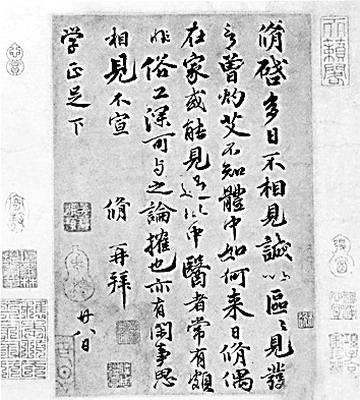 脩啓多日不相見誠以區區見發
言曾灼艾不知體中如何来日脩偶
在家或能見過此中醫者常有頗
非俗工深可与之論搉也亦有閑事思
相見不宣 脩再拜
廿八日
学正足下
天籟閣